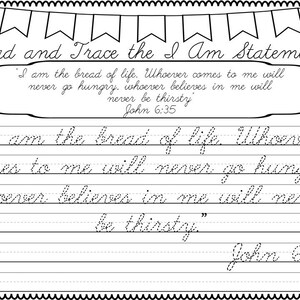 d and Trace the I Am Stateme
"I am the bread of life. Whoever comes to me will
never go hungry, whoever believes in me will
never be thirsty."
John 6:35
am the bread of life. Whoev
es to me will never go hun
oever believes in me will ne
be thirsty."
John 6